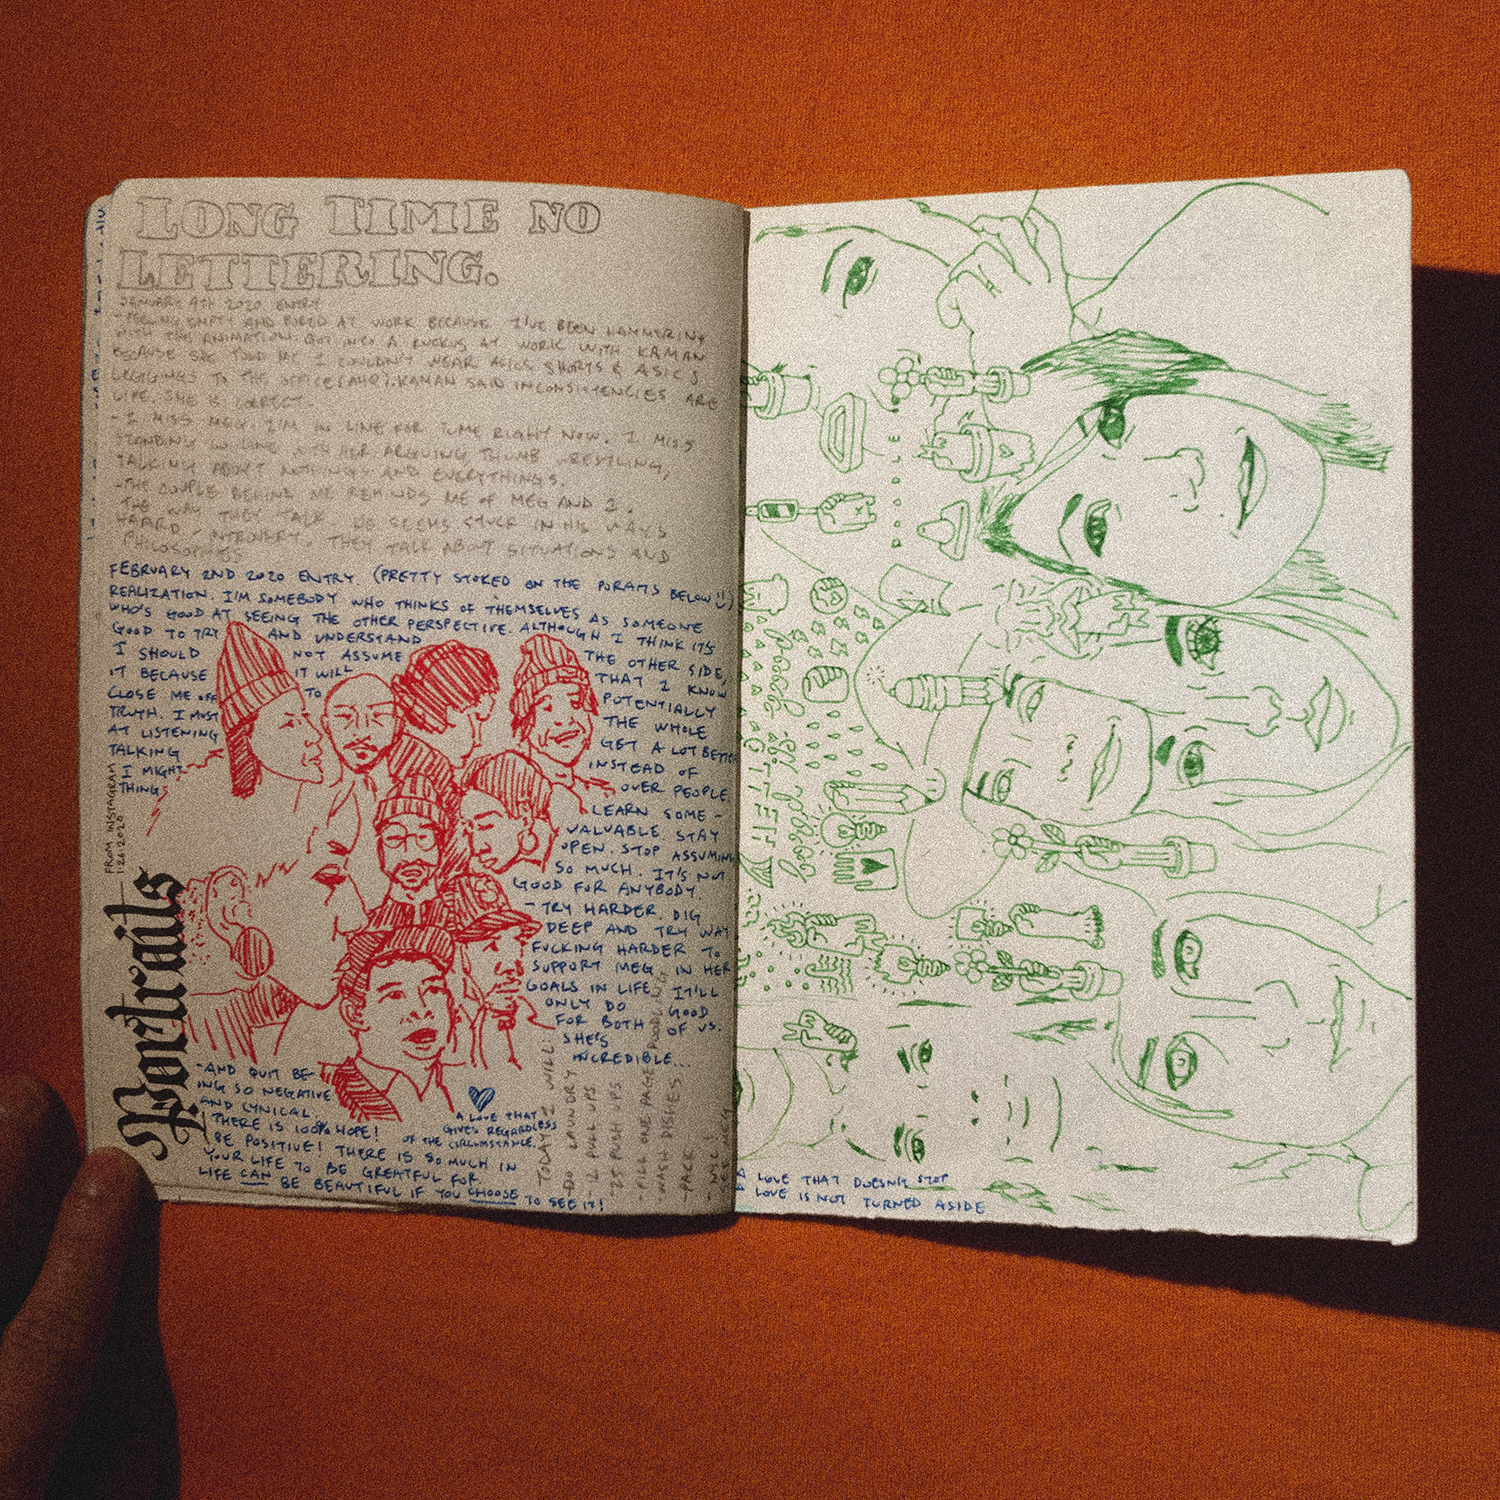 LONG TIME NO
LETTERING.
JANUARY 9TH 2020 ENTRY
-FEELING EMPTY AND BORED AT WORK BECAUSE I'VE BEEN HAMMERING
WITH THE ANIMATION. GOT INTO A RUCKUS AT WORK WITH KAMAN
BECAUSE SHE TOLD ME I COULDN'T WEAR ASICS SHORTS & ASICS
LEGGINGS TO THE OFFICE KAMAN SAID INCONSISTENCIES ARE
LIFE. SHE IS CORRECT.
- I MISS MEG. I'M IN LINE FOR RIGHT NOW. I MISS
STANDING IN LINE WITH HER ARGUING THUMB WRESTLING,
TALKING ABOUT NOTHINGS AND EVERYTHINGS.
-THE COUPLE BEHIND ME REMINDS ME OF MEG AND I.
THE WAY THEY TALK. HE SEEMS STUCK IN HIS WAYS
THEY TALK ABOUT SITUATIONS AND
PHILOSOPHIES
FEBRUARY 2ND 2020 ENTRY (PRETTY STOKED ON THE BELOW :))
REALIZATION. I'M SOMEBODY WHO THINKS OF THEMSELVES AS SOMEONE
WHO'S GOOD AT SEEING THE OTHER PERSPECTIVE. ALTHOUGH I THINK IT'S
GOOD TO TRY AND UNDERSTAND THE OTHER SIDE,
I SHOULD NOT ASSUME THAT I KNOW
IT BECAUSE IT WILL POTENTIALLY
CLOSE ME OFF TO THE WHOLE
TRUTH. I MUST GET A LOT BETTER
AT LISTENING INSTEAD OF
TALKING OVER PEOPLE.
I MIGHT LEARN SOME-
THING VALUABLE STAY
OPEN. STOP ASSUMING
SO MUCH. IT'S NOT
GOOD FOR ANYBODY.
- TRY HARDER. DIG
DEEP AND TRY WAY
FUCKING HARDER TO
SUPPORT MEG IN HER
GOALS IN LIFE. IT'LL
ONLY DO GOOD
FOR BOTH OF US.
SHE'S
INCREDIBLE.
-AND QUIT BE-
ING SO NEGATIVE
AND CYNICAL.
THERE IS 100% HOPE!
BE POSITIVE! THERE IS SO MUCH IN
YOUR LIFE TO BE GREATFUL FOR.
LIFE CAN BE BEAUTIFUL IF YOU CHOOSE TO SEE IT!
A LOVE THAT
GIVES REGARDLESS
OF THE CIRCUMSTANCE.
Portraits
FROM INSTAGRAM
TODAY I WILL:
-DO LAUNDRY
-25 PUSH UPS
-FILL ONE PAGE
-WASH DISHES
-PACK
A LOVE THAT DOESN'T STOP
A LOVE IS NOT TURNED ASIDE